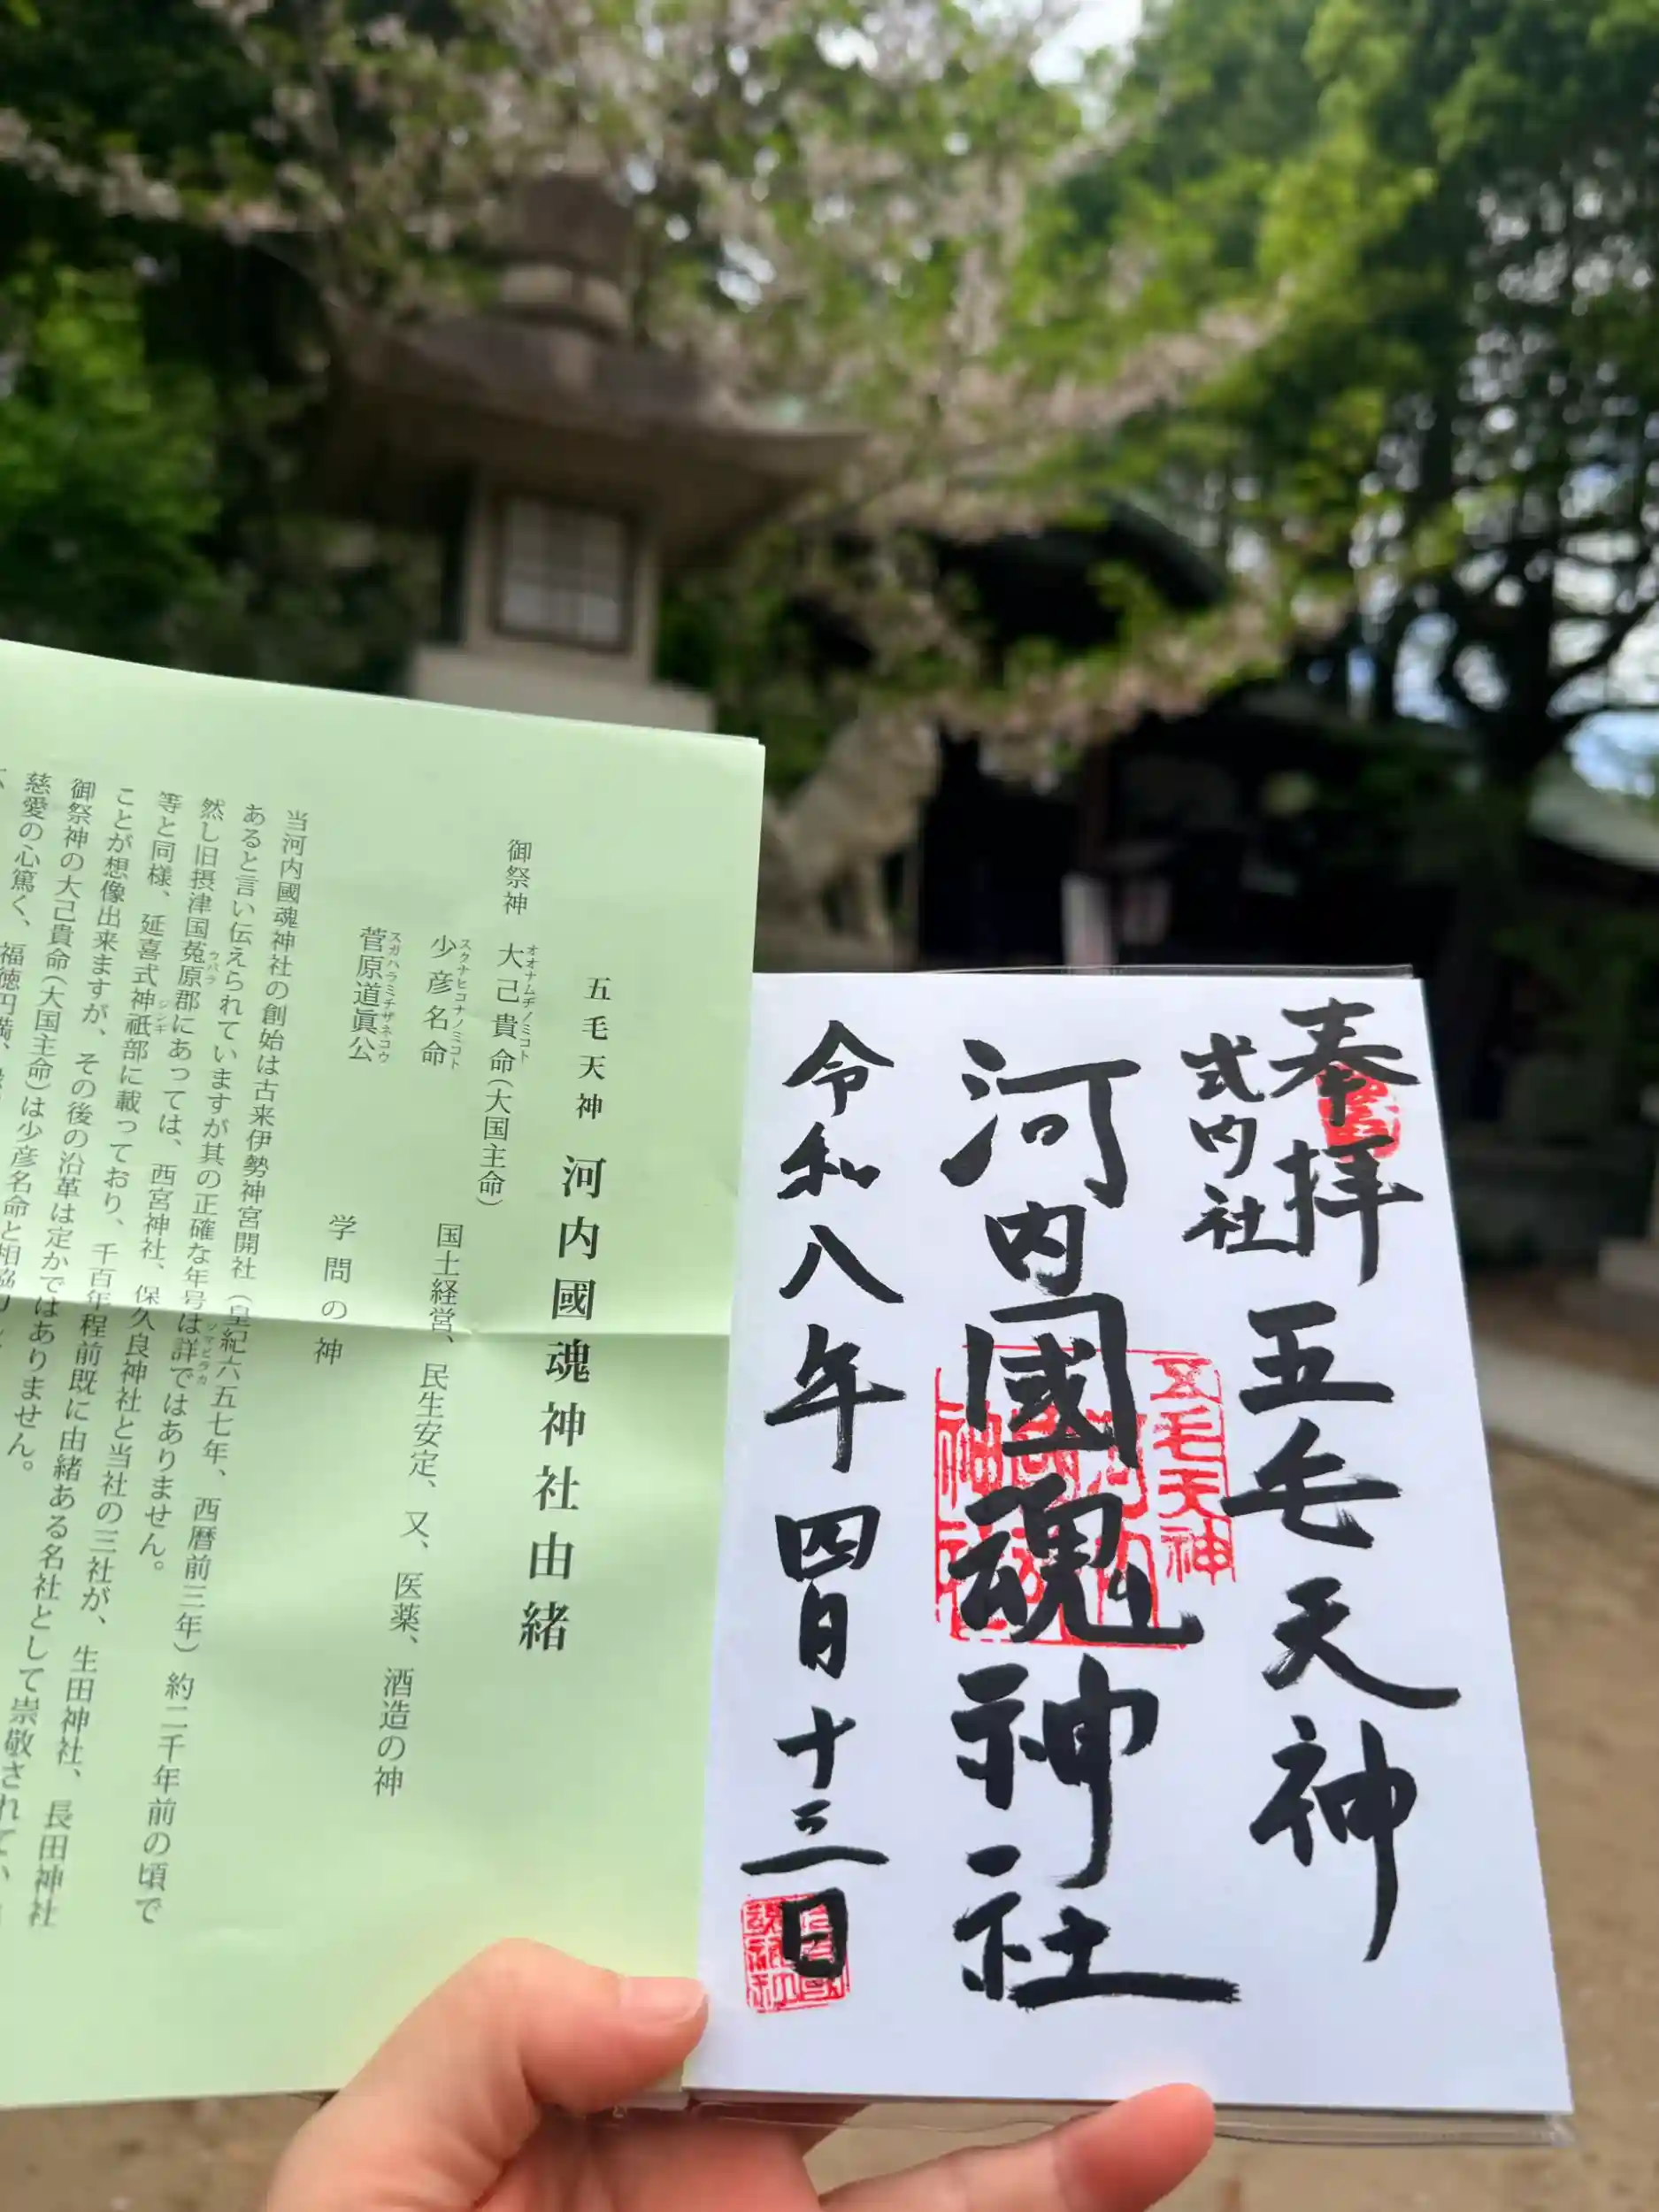 奉拝
式内社
五毛天神
河内國魂神社
令和八年四月十三日
五毛天神
五毛天神 河内國魂神社由緒
御祭神 大己貴命(大国主命)
オオナムヂノミコト
国土経営、民生安定、又、医薬、酒造の神
少彦名命
スクナヒコナノミコト
菅原道眞公
スガハラミチザネコウ
学問の神
当河内國魂神社の創始は古来伊勢神宮開社(皇紀六五七年、西暦前三年)約二千年前の頃で
あると言い伝えられていますが其の正確な年号は詳ではありません。
ツマビラカ
然し旧摂津国菟原郡にあっては、西宮神社、保久良神社と当社の三社が、生田神社、長田神社
ウバラ
等と同様、延喜式神祇部に載っており、千百年程前既に由緒ある名社として崇敬されて
ジンギ
ことが想像出来ますが、その後の沿革は定かではありません。
御祭神の大己貴命(大国主命)は少彦名命と相協
慈愛の心篤く、福徳円満、